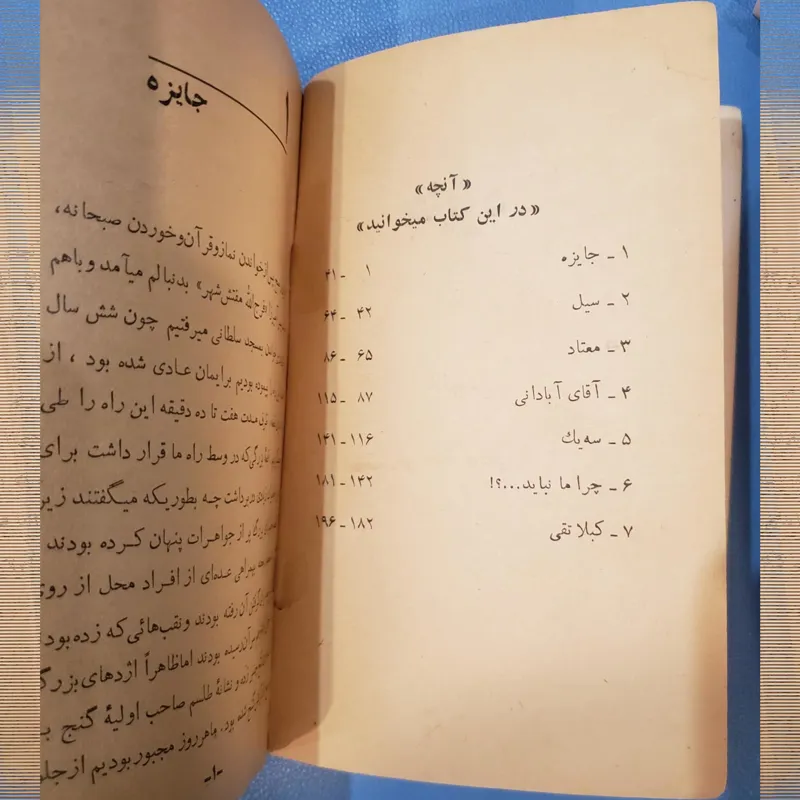 «آنچه»
«در این کتاب میخوانید»
۱ ـ جایزه ۱ ـ ۴۱
۲ ـ سیل ۴۲ ـ ۶۴
۳ ـ معتاد ۶۵ ـ ۸۶
۴ ـ آقای آبادانی ۸۷ ـ ۱۱۵
۵ ـ سه‌یك ۱۱۶ ـ ۱۴۱
۶ ـ چرا ما نباید...؟! ۱۴۲ ـ ۱۸۱
۷ ـ کبلا تقی ۱۸۲ ـ ۱۹۶
۱
جایزه
خواندن نماز و قرآن و خوردن صبحانه،
«فرج‌الله مفتش شهر» بدنبالم میآمد و باهم
بمسجد سلطانی میرفتیم چون شش سال
بودیم برایمان عادی شده بود، از
مدت هفت تا ده دقیقه این راه را طی
بزرگی که در وسط راه ما قرار داشت برای
در برداشت چه بطوریکه میگفتند زیر
پر از جواهرات پنهان کرده بودند
عده‌ای از افراد محل از روی
آن رفته بودند و نقب‌هائی که زده بود
رسیده بودند اما ظاهراً اژدهای بزرگ
و نشانهٔ طلسم صاحب اولیهٔ گنج
بود. ما هر روز مجبور بودیم از جلو
-۱-